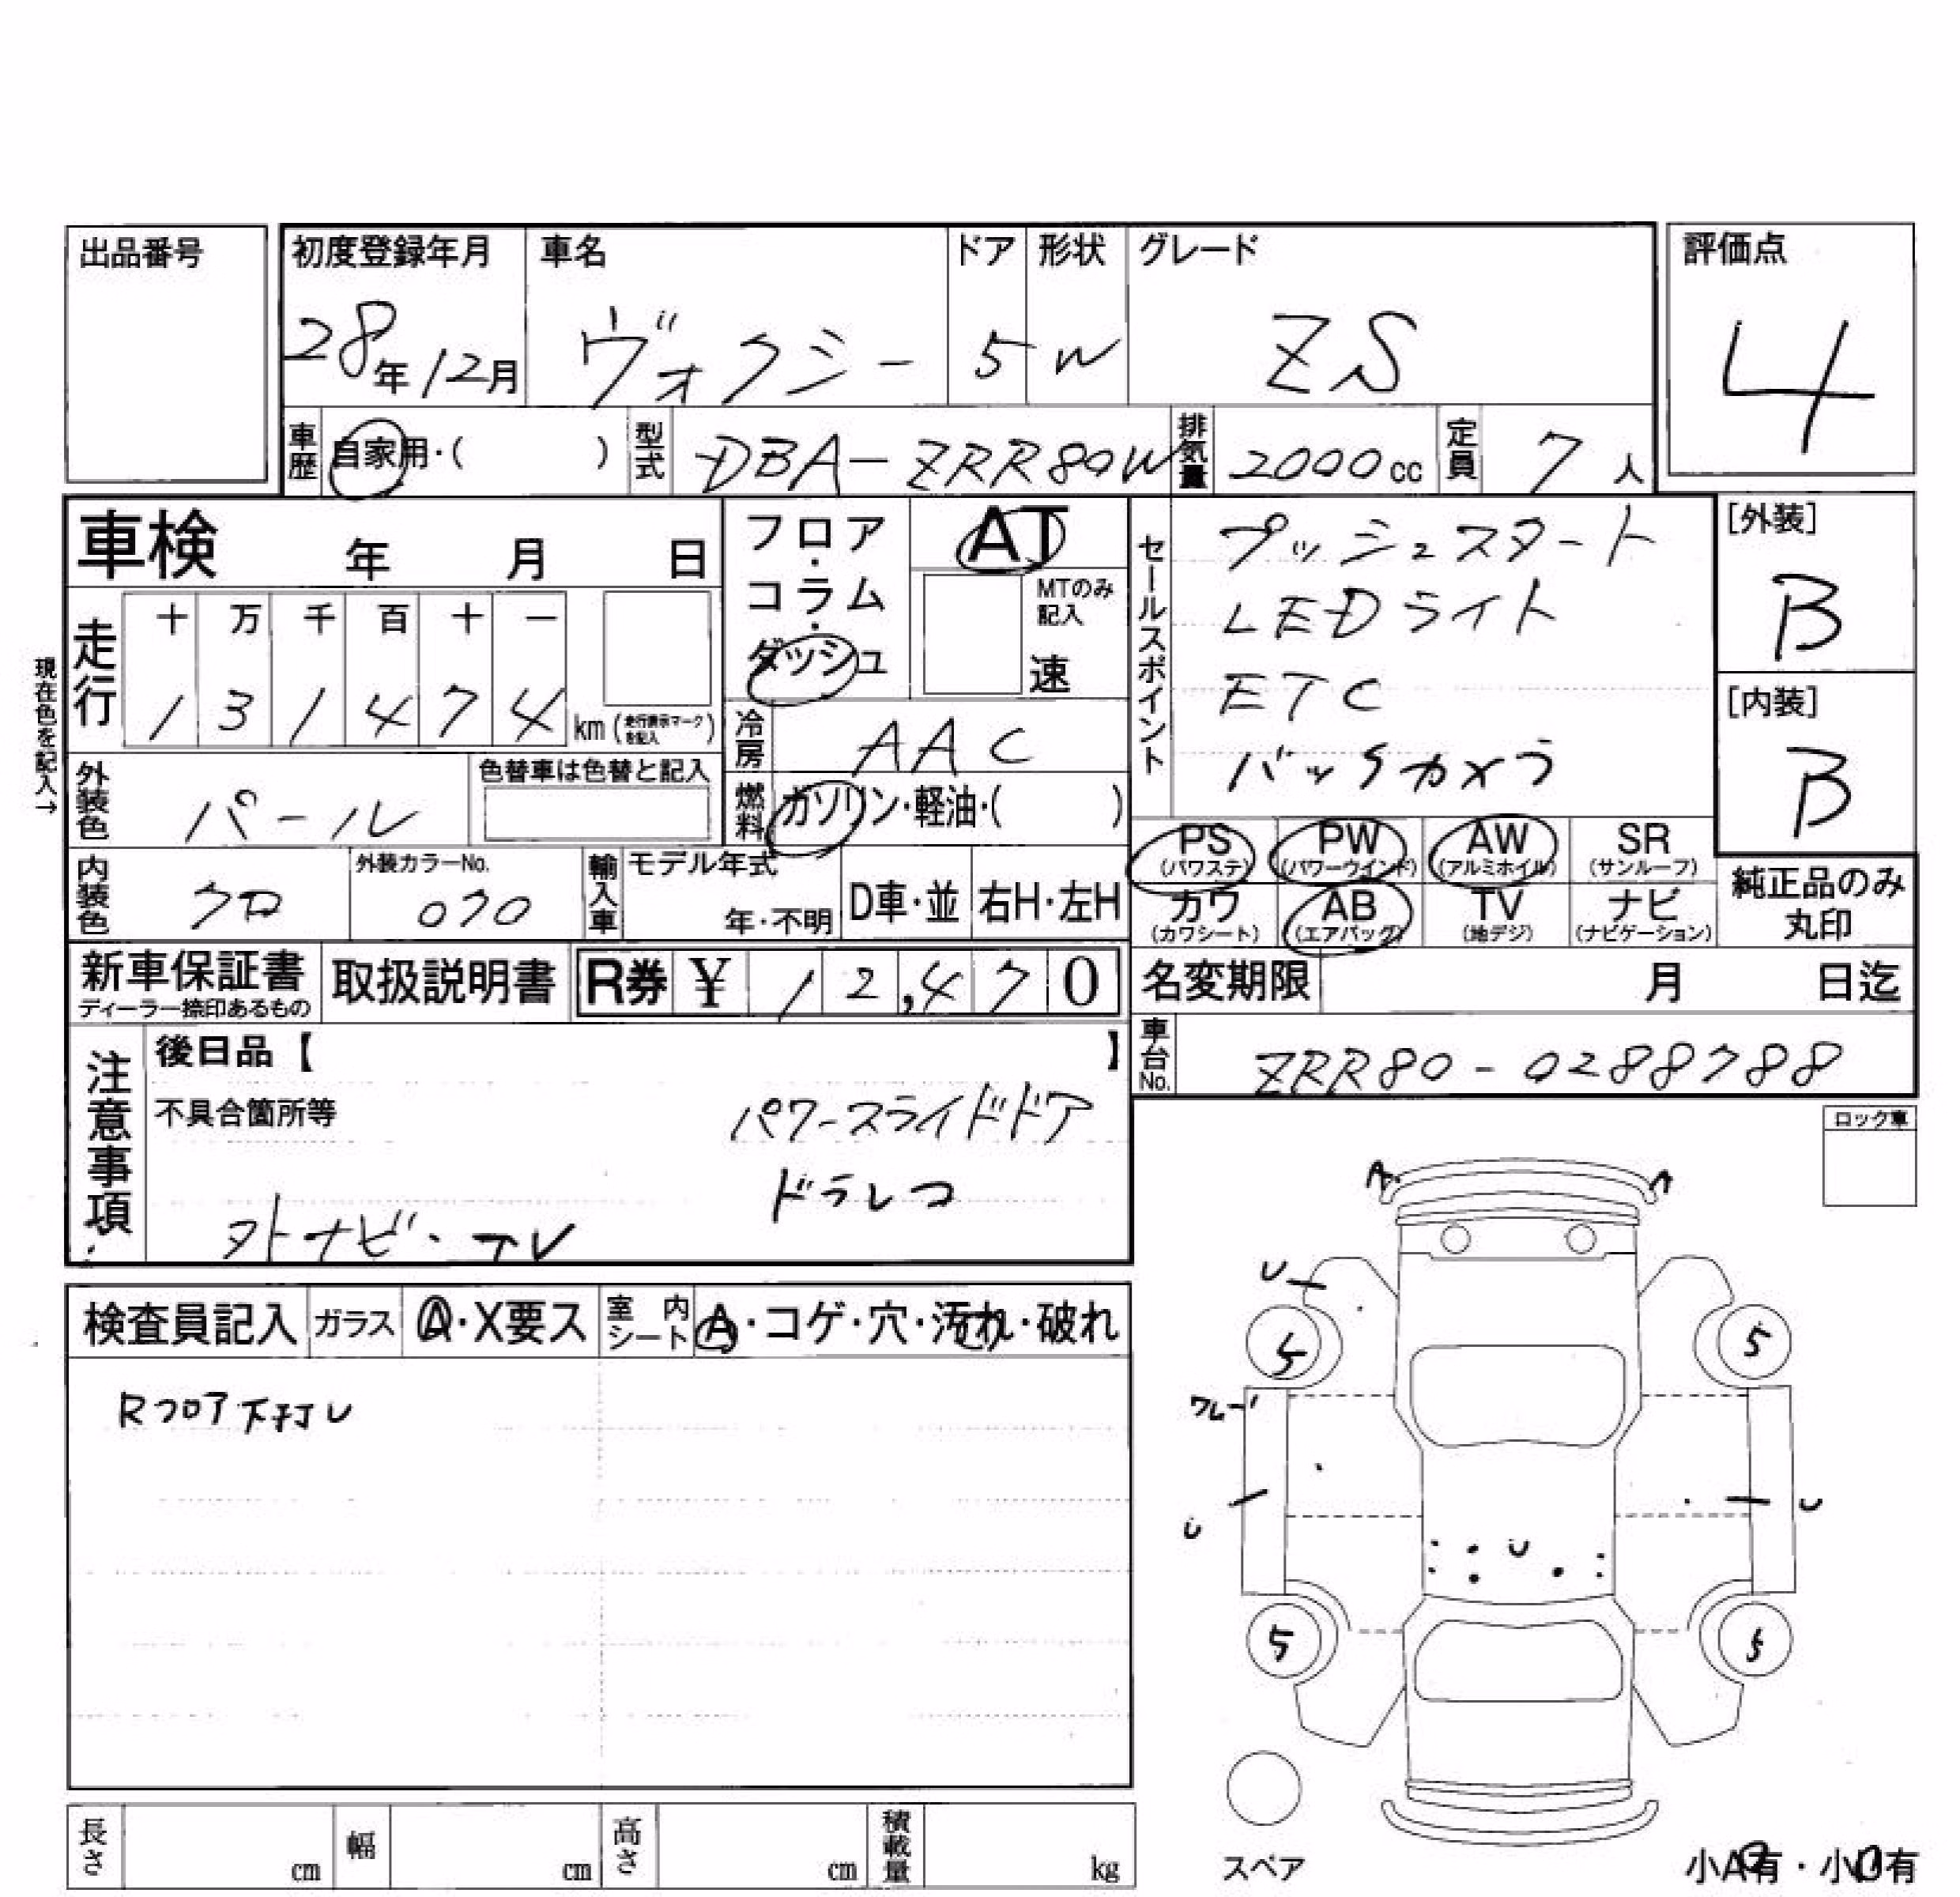 出品番号
初度登録年月 車名 ドア 形状 グレード 評価点
28年12月 ヴォクシー 5 W ZS 4
車歴 自家用・( ) 型式 DBA-ZRR80W 排気量 2000cc 定員 7人
車検 年 月 日
フロア・コラム・ダッシュ
AT
MTのみ記入
速
セールスポイント
プッシュスタート
LEDライト
ETC
バックカメラ
[外装]
B
[内装]
B
現在色を記入→
走行 十 万 千 百 十 一
1 3 1 4 7 4 km (走行表示マークを記入)
冷房 AAC
外装色 パール 色替車は色替と記入
燃料 ガソリン・軽油・( )
PS (パワステ) PW (パワーウインド) AW (アルミホイル) SR (サンルーフ)
カワ (カワシート) AB (エアバック) TV (地デジ) ナビ (ナビゲーション)
純正品のみ丸印
内装色 クロ 外装カラーNo. 070 輸入車 モデル年式 年・不明 D車・並 右H・左H
新車保証書 ディーラー捺印あるもの 取扱説明書 R券 ¥ 12,470
名変期限 月 日迄
車台No. ZRR80-0288788
注意事項
後日品【 】
不具合箇所等 パワースライドドア
ドラレコ
外ナビ・TV
ロック車
検査員記入 ガラス A・X要ス 室内シート A・コゲ・穴・汚れ・破れ
Rフロア下打U
A A
U
5 5
ワレ
U U
U
5 5
スペア
小A有・小U有
長さ cm 幅 cm 高さ cm 積載量 kg